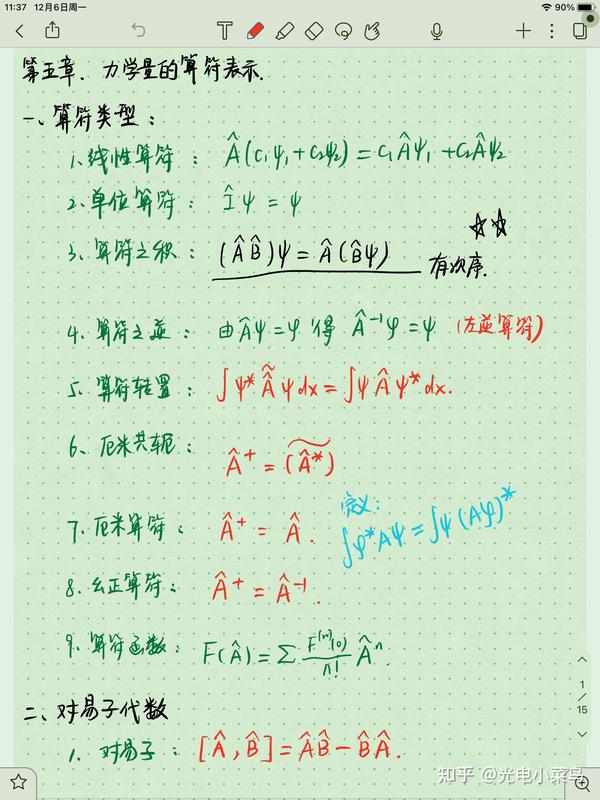 11:37 12月6日周一
90%
第五章. 力学量的算符表示.
一、算符类型:
1. 线性算符: Â(c₁ψ₁+c₂ψ₂)=c₁Âψ₁+c₂Âψ₂
2. 单位算符: Îψ=ψ
3. 算符之积: (ÂB̂)ψ=Â(B̂ψ) 有次序. ☆☆
4. 算符之逆: 由Âψ=φ 得 Â⁻¹φ=ψ (左逆算符)
5. 算符转置: ∫ψ* Ẫ ψdx=∫ψÂψ*dx.
6、厄米共轭: Â⁺=(Â*)̃
定义:
7. 厄米算符: Â⁺=Â. ∫φ*Aψ=∫ψ(Aφ)*
8. 幺正算符: Â⁺=Â⁻¹.
9. 算符函数: F(Â)=Σ F⁽ⁿ⁾(0)/n! Âⁿ.
二、对易子代数
1. 对易子: [Â,B̂]=ÂB̂-B̂Â.
1/15
知乎 @光电小菜鸟